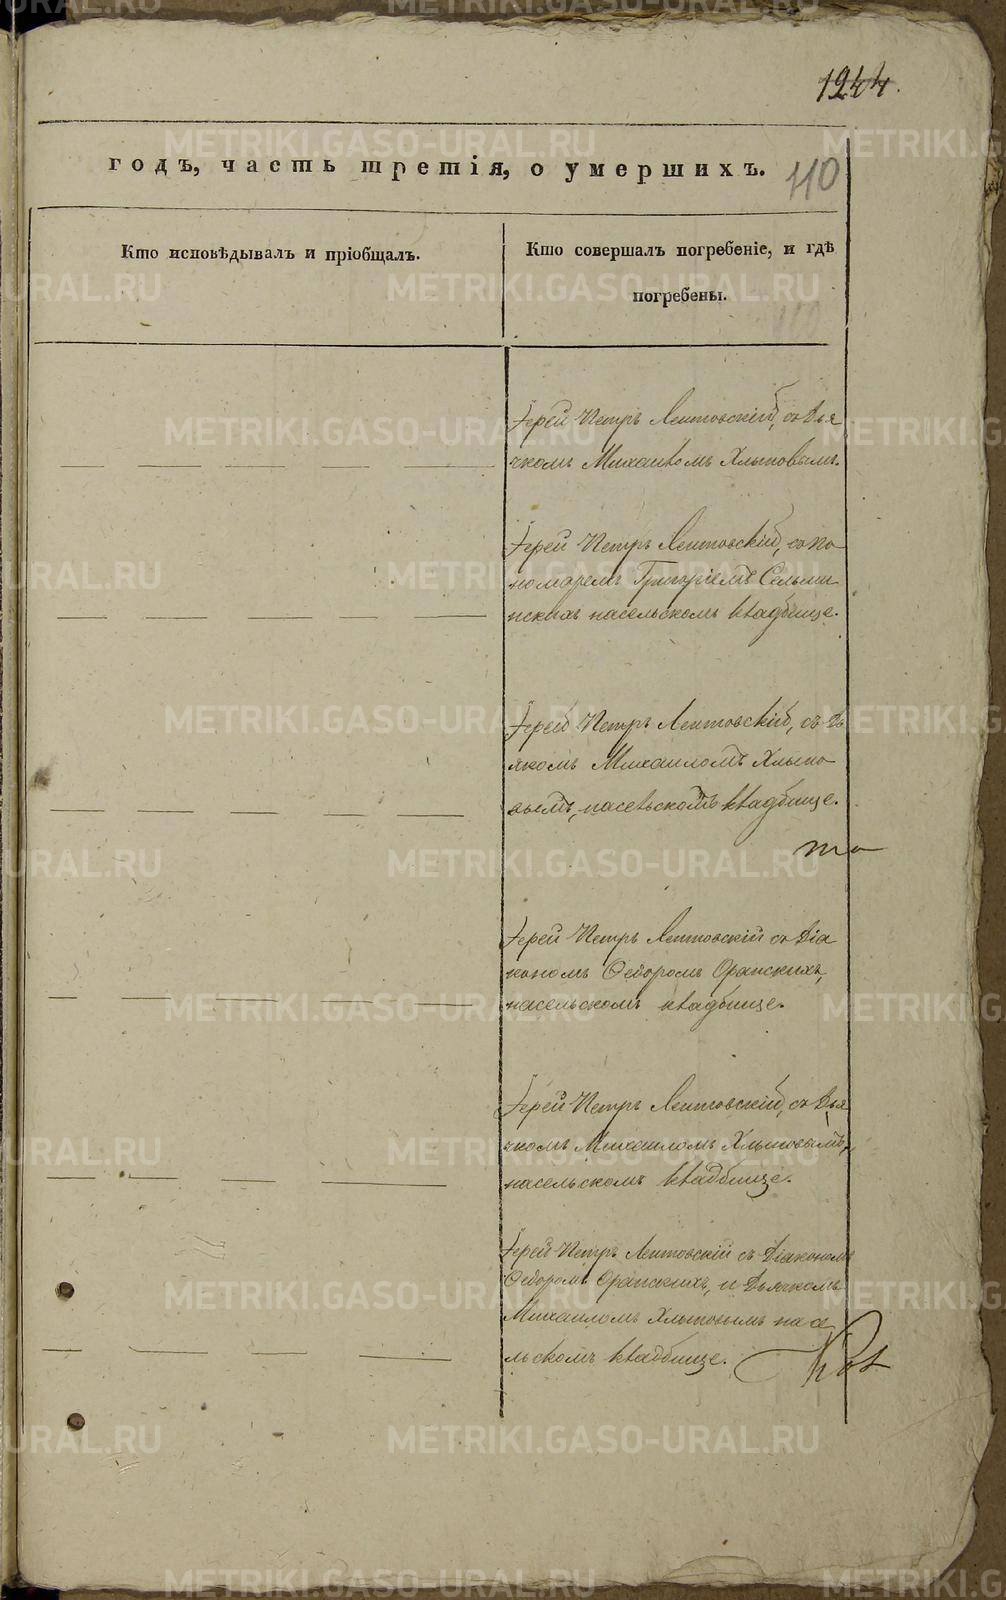 1244.
годъ, часть третія, о умершихъ.
110
Кто исповѣдывалъ и пріобщалъ.
Кто совершалъ погребеніе, и гдѣ
погребены.
Іерей Петръ Лентовскій, съ Дья
чкомъ Михаиломъ Хлыновымъ.
Іерей Петръ Лентовскій, съ по
номаремъ Григоріемъ Сельми
нскихъ насельскомъ кладбище.
Іерей Петръ Лентовскій, съ Дь
ячкомъ Михаиломъ Хлыно
вымъ, насельскомъ кладбище.
Іерей Петръ Лентовскій съ Діа
кономъ Ѳедоромъ Оранскихъ,
насельскомъ кладбище.
Іерей Петръ Лентовскій, съ Дья
чкомъ Михаиломъ Хлыновымъ,
насельскомъ кладбище.
Іерей Петръ Лентовскій съ Діакономъ
Ѳедоромъ Оранскихъ, и Дьячкомъ
Михаиломъ Хлыновымъ на се
льскомъ кладбище.
METRIKI.GASO-URAL.RU